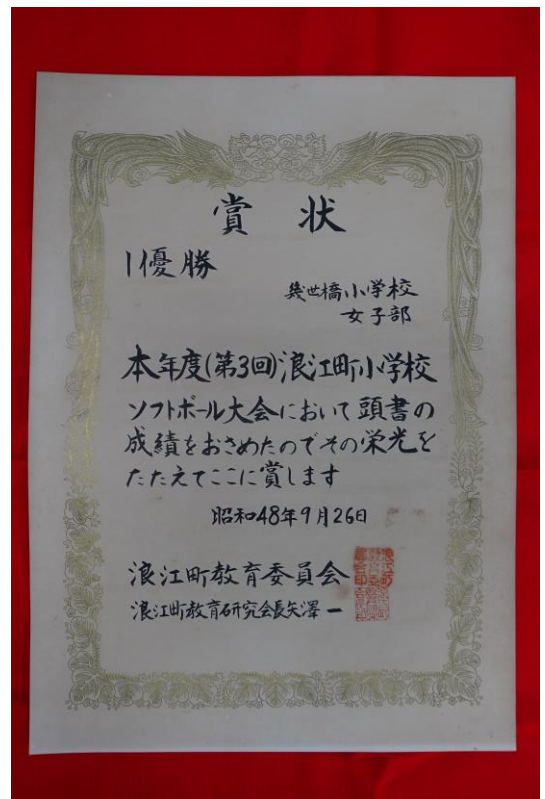 賞 状
1優勝
幾世橋小学校
女子部
本年度(第3回)浪江町小学校
ソフトボール大会において頭書の
成績をおさめたのでその栄光を
たたえてここに賞します
昭和48年9月26日
浪江町教育委員会
浪江町教育研究会長矢澤一